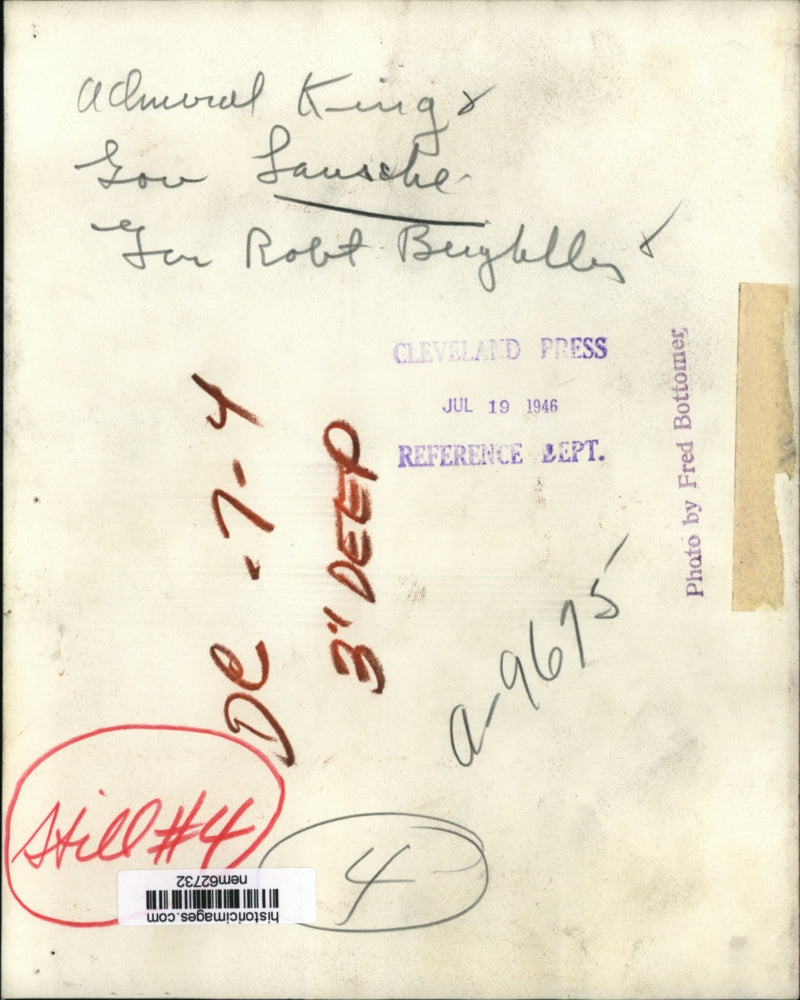 Admiral King x
Gov Lausche
Gov Robt x
CLEVELAND PRESS
JUL 19 1946
REFERENCE DEPT.
Photo by Fred Bottomer
DC - 7-4
3" DEEP
a-9675
Still #4
4
historicimages.com
nem62732